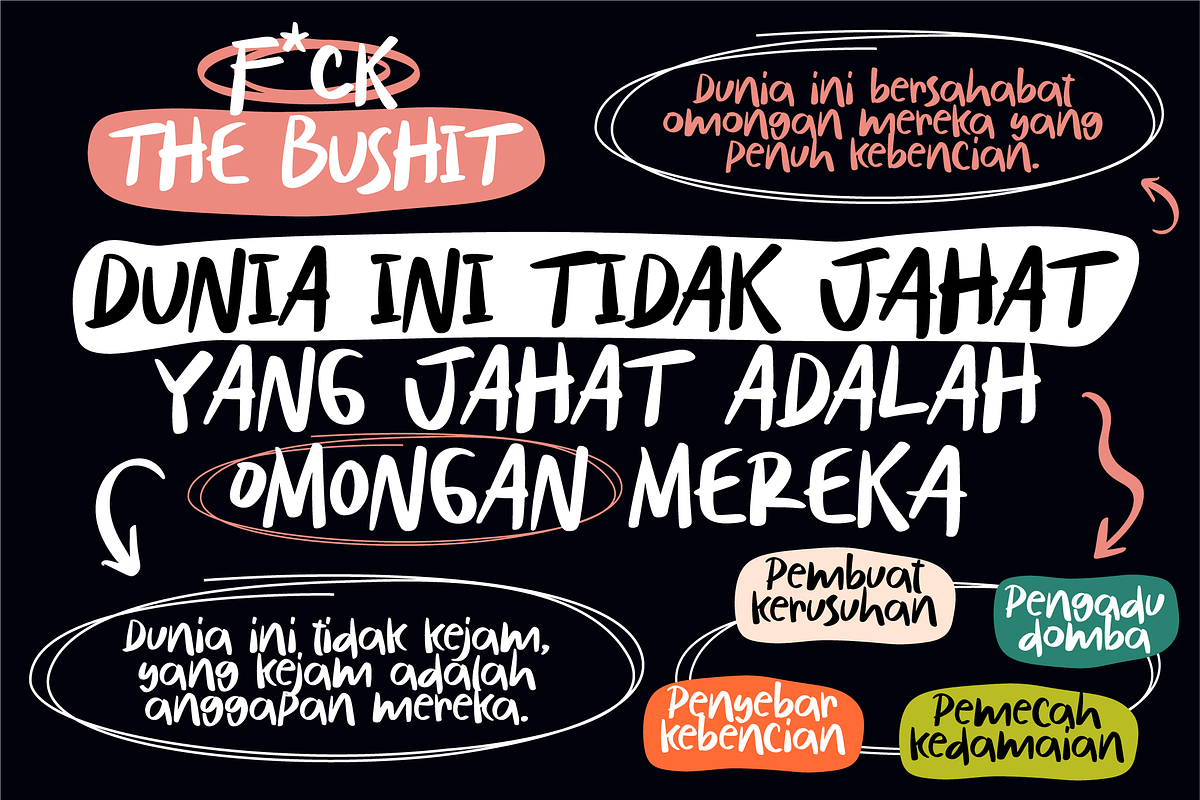 F*CK
THE BUSHIT
Dunia ini bersahabat
omongan mereka yang
penuh kebencian.
DUNIA INI TIDAK JAHAT
YANG JAHAT ADALAH
OMONGAN MEREKA
Dunia ini tidak kejam,
yang kejam adalah
anggapan mereka.
Pembuat
kerusuhan
Pengadu
domba
Penyebar
kebencian
Pemecah
kedamaian